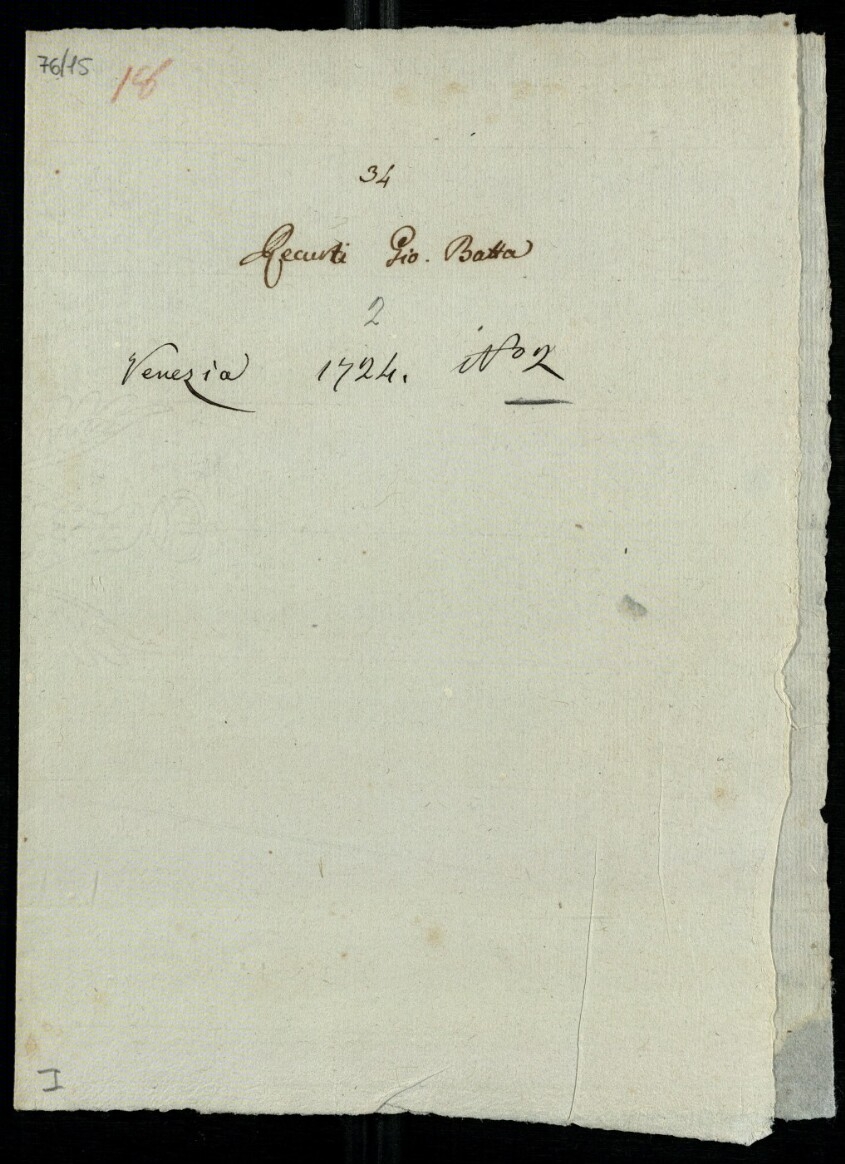 76/15
18
34
Recurti Gio. Batta
2
Venezia 1724. No 2
I